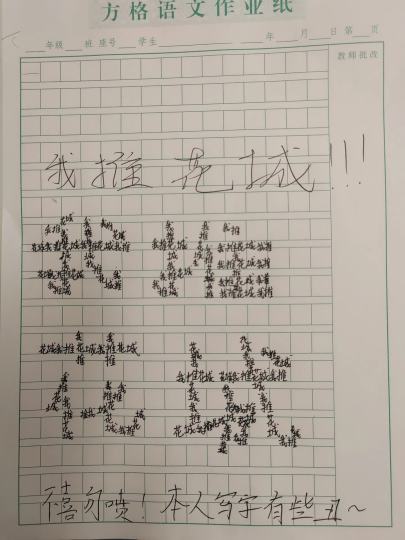 方格语文作业纸
年级 班 座号 学生 年 月 日 第 页
教师批改
我推花城!!!
我推
花城
不喜勿喷！本人写字有些丑～